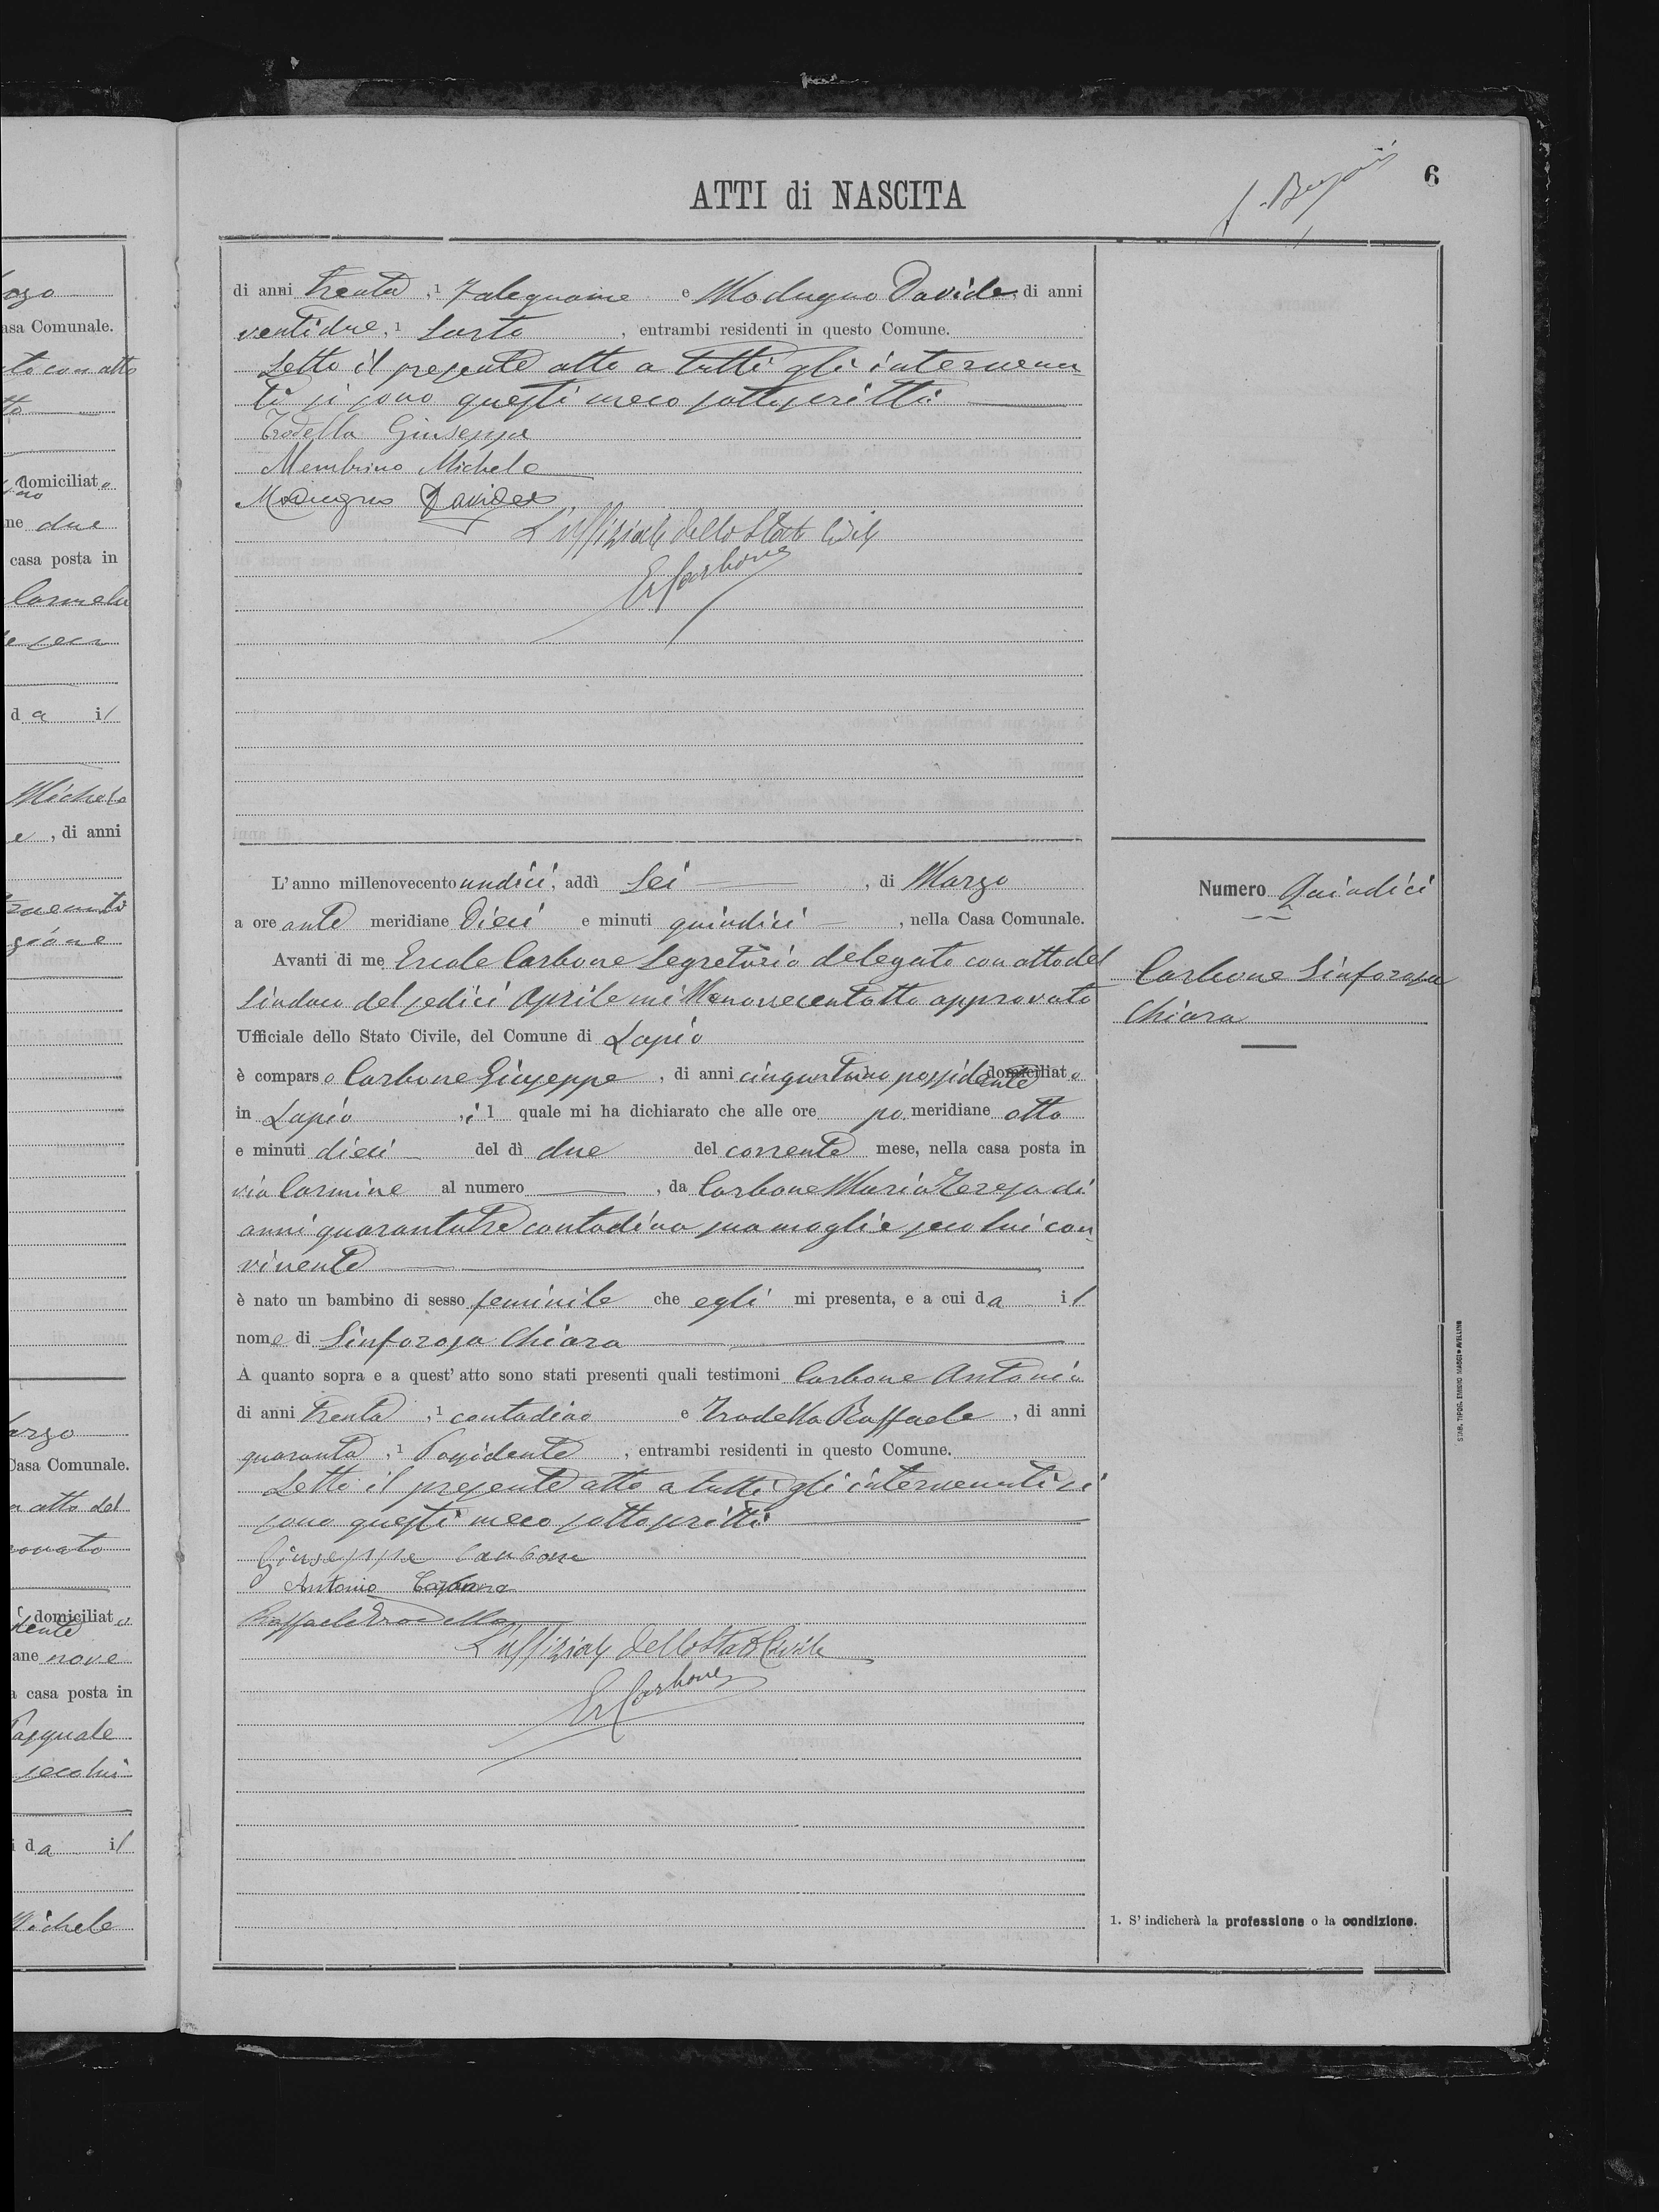 ATTI di NASCITA
6
di anni trenta, 1 Falegname e Modugno Davide, di anni
ventidue, 1 Sarto, entrambi residenti in questo Comune.
Letto il presente atto a tutti gli intervenu
ti si sono questi meco sottoscritti
Trodella Giuseppe
Membrino Michele
Modugno Davide
L'uffiziale dello Stato Civile
Er Carbone
L'anno millenovecento undici, addì Sei, di Marzo
a ore ante meridiane Dieci e minuti quindici, nella Casa Comunale.
Avanti di me Ercole Carbone Segretario delegato con atto del
Sindaco del sedici Aprile millenovecentotto approvato
Ufficiale dello Stato Civile, del Comune di Lapio
è comparso Carbone Giuseppe, di anni cinquantuno possidente domiciliato
in Lapio, il quale mi ha dichiarato che alle ore po meridiane otto
e minuti dieci del dì due del corrente mese, nella casa posta in
via Carmine al numero, da Carbone Maria Teresa di
anni quarantatre contadina sua moglie seco lui con
vivente
è nato un bambino di sesso feminile che egli mi presenta, e a cui da il
nome di Sinforosa Chiara
A quanto sopra e a quest'atto sono stati presenti quali testimoni Carbone Antonio
di anni trenta, 1 contadino e Trodella Raffaele, di anni
quaranta, 1 Possidente, entrambi residenti in questo Comune.
Letto il presente atto a tutti gli intervenuti si
sono questi meco sottoscritti
Giuseppe Carbone
Antonio Carbone
Raffaele Trodella
L'uffiziale dello Stato Civile
Er Carbone
Numero Quindici
Carbone Sinforosa
Chiara
1. S'indicherà la professione o la condizione.
STAB. TIPOG. EMIDIO MAGGI - AVELLINO
azo
asa Comunale.
to con atto
domiciliato
ne due
casa posta in
Carmela
da il
Michele
e, di anni
arzo
Casa Comunale.
n atto del
domiciliato
dente
ane nove
a casa posta in
Pasquale
seco lui
i da il
Michele